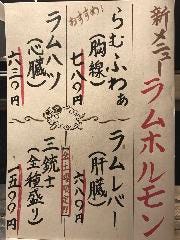 新メニュー
ラムホルモン
らむふわぁ
(胸線)
七八〇円
おすすめ!
ラムハツ
(心臓)
六三〇円
ラムレバー
(肝臓)
六八〇円
三銃士
(全種盛り)
一五〇〇円